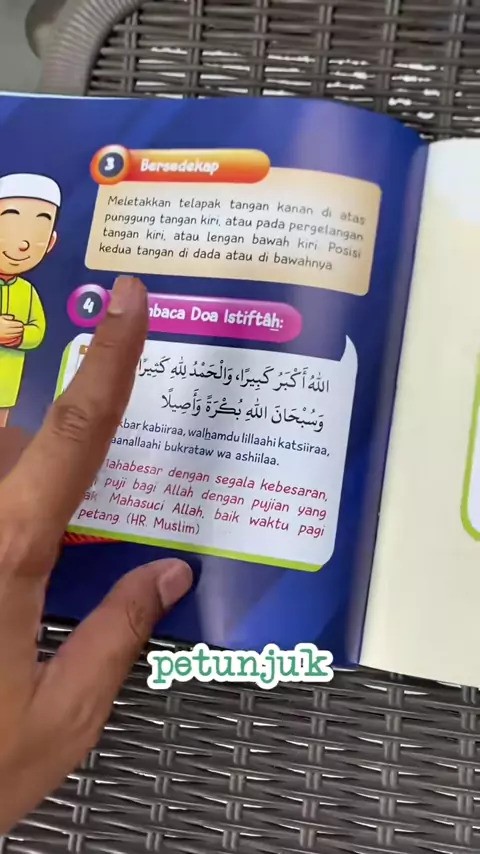 3 Bersedekap
Meletakkan telapak tangan kanan di atas
punggung tangan kiri, atau pada pergelangan
tangan kiri, atau lengan bawah kiri. Posisi
kedua tangan di dada atau di bawahnya
4 mbaca Doa Istiftâh:
اللهُ أَكْبَرُ كَبِيرًا، وَالْحَمْدُ لِلّٰهِ كَثِيرًا
وَسُبْحَانَ اللهِ بُكْرَةً وَأَصِيلًا
kbar kabiiraa, walhamdu lillaahi katsiiraa,
aanallaahi bukrataw wa ashiilaa.
Mahabesar dengan segala kebesaran,
puji bagi Allah dengan pujian yang
ak Mahasuci Allah, baik waktu pagi
petang (HR. Muslim)
petunjuk